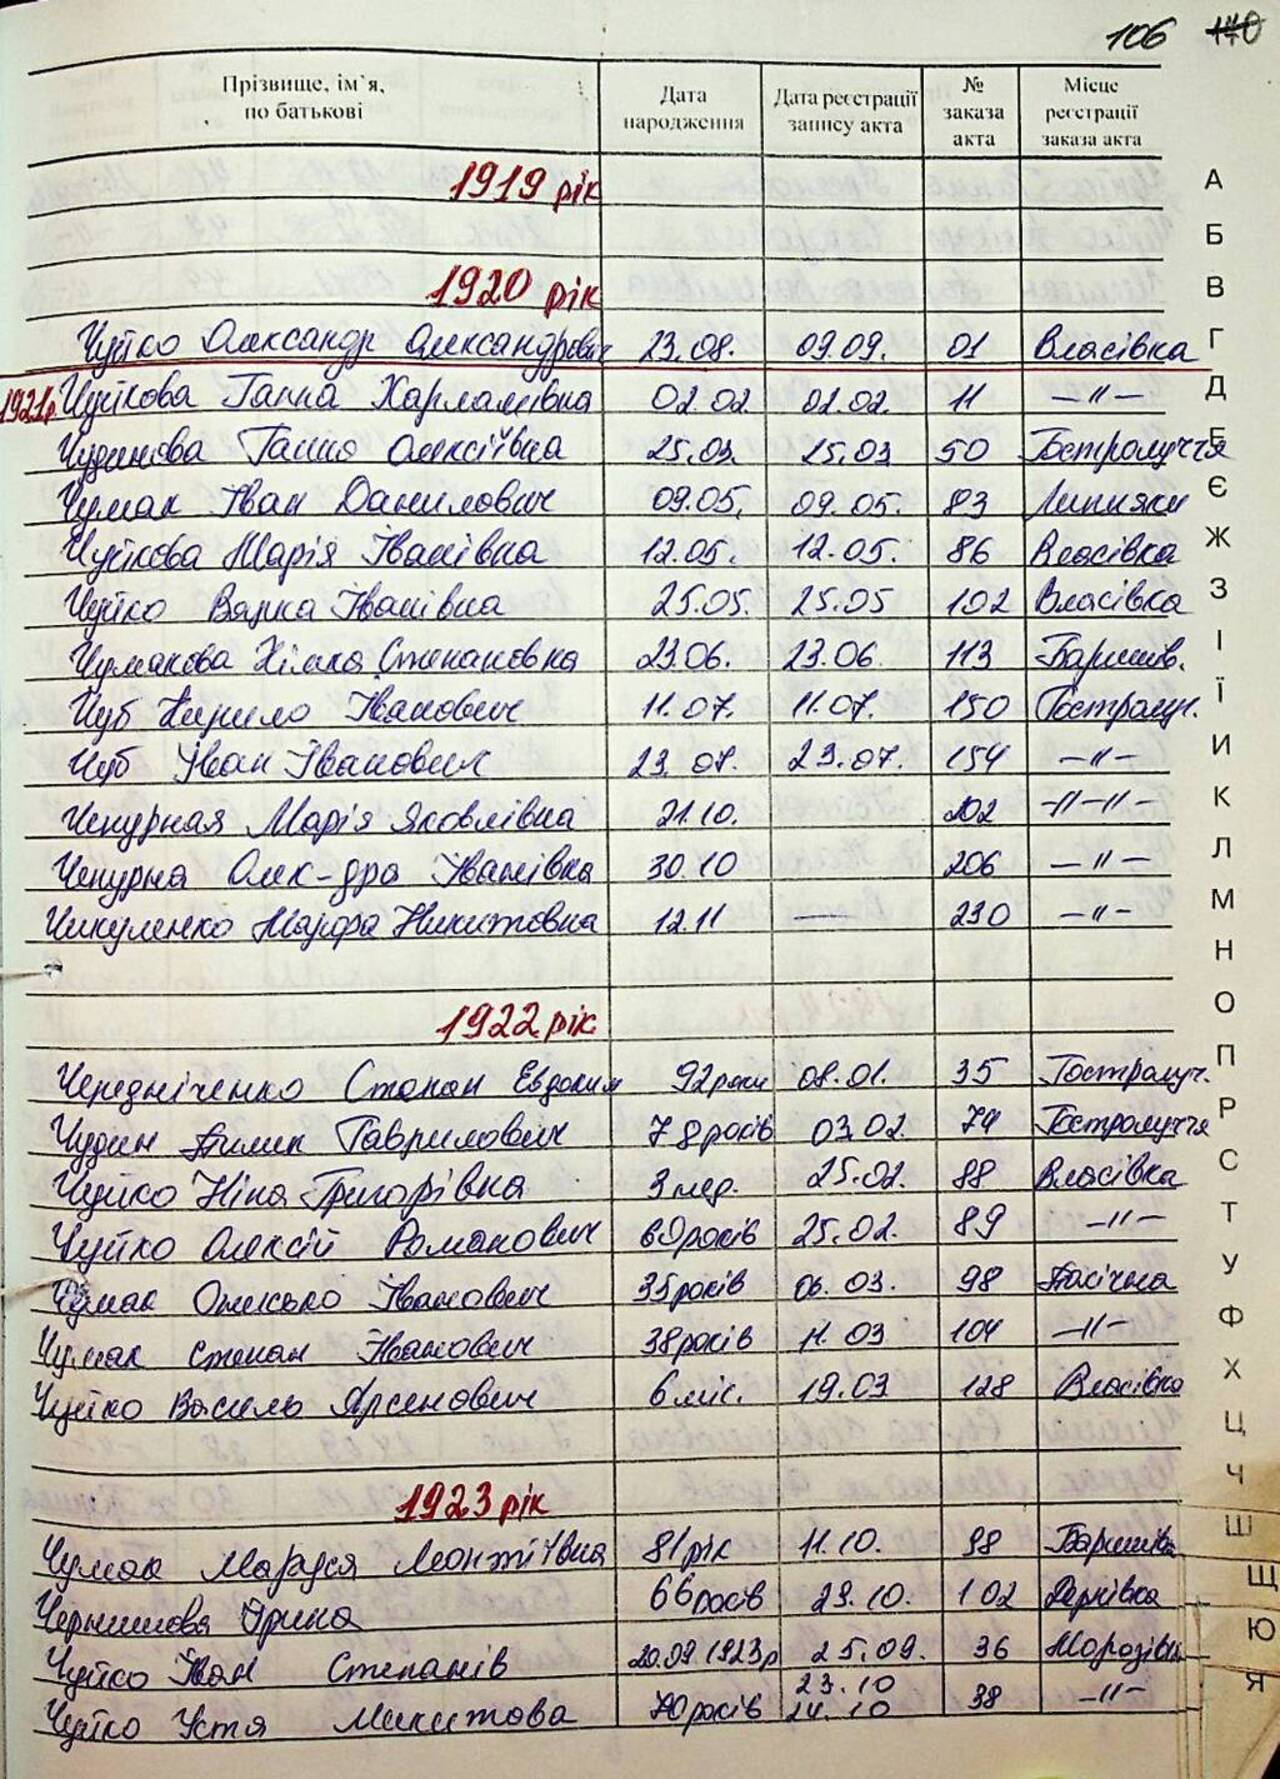 106 140
Прізвище, ім`я, по батькові Дата народження Дата реєстрації запису акта № заказа акта Місце реєстрації заказа акта
1919 рік
1920 рік
Чуйко Олександр Олександрович 23.08. 09.09. 01 Власівка
1921р. Чуйкова Ганна Харламівна 02.02 02.02. 11 —"—
Чудинова Ганна Олексіївна 25.03. 25.03 50 Гостролуччя
Чумак Іван Данилович 09.05. 09.05. 83 Липняки
Чуйкова Марія Іванівна 12.05. 12.05. 86 Власівка
Чуйко Іванівна 25.05. 25.05 102 Власівка
Чумакова Хімка Степановна 23.06. 23.06. 113 Баришів.
Чуб Кирило Іванович 11.07. 11.07. 150 Гостролуч.
Чуб Іван Іванович 23.07. 23.07. 154 —"—
Чепурная Марія Яковлівна 21.10. 202 —"—"—
Чепурна Олек-дра Іванівна 30.10 206 —"—
Чикуленко Марфа Никитовна 12.11 — 230 —"—
1922 рік
Чередніченко Степан Евдоким 92 роки 08.01. 35 Гостролуч.
Чудин Гаврилович 78 років 03.02. 74 Гостролуччя
Чуйко Ніна Григорівна 3 нед. 25.02. 88 Власівка
Чуйко Олексій Романович 60 років 25.02. 89 —"—
Чумак Іванович 35 років 06.03. 98 Пасічна
Чумак Степан Іванович 38 років 11.03 104 —"—
Чуйко Василь Арсенович 6 міс. 19.03 128 Власівка
1923 рік
Чумак Маруся Леонтіївна 81 рік 11.10. 98 Баришівка
Чернишова Орина 66 років 29.10. 102
Чуйко Іван Степанів 20.09.1923р 25.09. 36 Морозівка
23.10
Чуйко Устя Микитова 70 років 24.10 38 —"—
А
Б
В
Г
Д
Е
Є
Ж
З
І
Ї
И
К
Л
М
Н
О
П
Р
С
Т
У
Ф
Х
Ц
Ч
Ш
Щ
Ю
Я